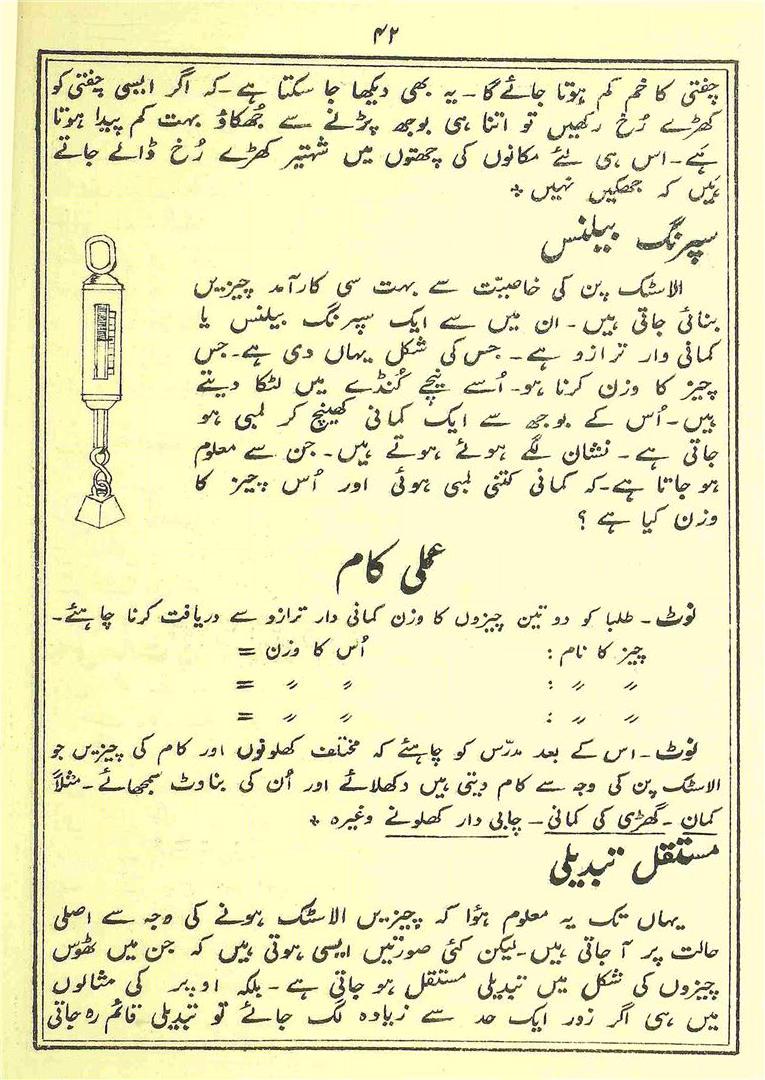 ۴۲
چفتی کا خم کم ہوتا جائے گا۔ یہ بھی دیکھا جا سکتا ہے۔ کہ اگر ایسی چفتی کو
کھڑے رُخ رکھیں تو اتنا ہی بوجھ پڑنے سے جُھکاؤ بہت کم پیدا ہوتا
ہے۔ اس ہی لئے مکانوں کی چھتوں میں شہتیر کھڑے رُخ ڈالے جاتے
ہیں کہ جھکیں نہیں *
سپرنگ بیلنس
الاسٹک پن کی خاصیّت سے بہت سی کارآمد چیزیں
بنائی جاتی ہیں۔ ان میں سے ایک سپرنگ بیلنس یا
کمانی وار ترازو ہے۔ جس کی شکل یہاں دی ہے۔ جس
چیز کا وزن کرنا ہو۔ اُسے نیچے کُنڈے میں لٹکا دیتے
ہیں۔ اُس کے بوجھ سے ایک کمانی کھینچ کر لمبی ہو
جاتی ہے۔ نشان لگے ہوئے ہوتے ہیں۔ جن سے معلوم
ہو جاتا ہے۔ کہ کمانی کتنی لمبی ہوئی اور اُس چیز کا
وزن کیا ہے ؟
عملی کام
نوٹ۔ طلبا کو دو تین چیزوں کا وزن کمانی دار ترازو سے دریافت کرنا چاہئے۔
چیز کا نام : اُس کا وزن =
〃 〃 : 〃 〃 〃 =
〃 〃 : 〃 〃 〃 =
نوٹ۔ اس کے بعد مدرّس کو چاہئے کہ مختلف کھلونوں اور کام کی چیزیں جو
الاسٹک پن کی وجہ سے کام دیتی ہیں دکھلائے اور اُن کی بناوٹ سمجھائے۔ مثلاً
کمان۔ گھڑی کی کمانی۔ چابی دار کھلونے وغیرہ *
مستقل تبدیلی
یہاں تک یہ معلوم ہؤا کہ چیزیں الاسٹک ہونے کی وجہ سے اصلی
حالت پر آ جاتی ہیں۔ لیکن کئی صورتیں ایسی ہوتی ہیں کہ جن میں ٹھوس
چیزوں کی شکل میں تبدیلی مستقل ہو جاتی ہے۔ بلکہ اوپر کی مثالوں
میں ہی اگر زور ایک حد سے زیادہ لگ جائے تو تبدیلی قائم رہ جاتی